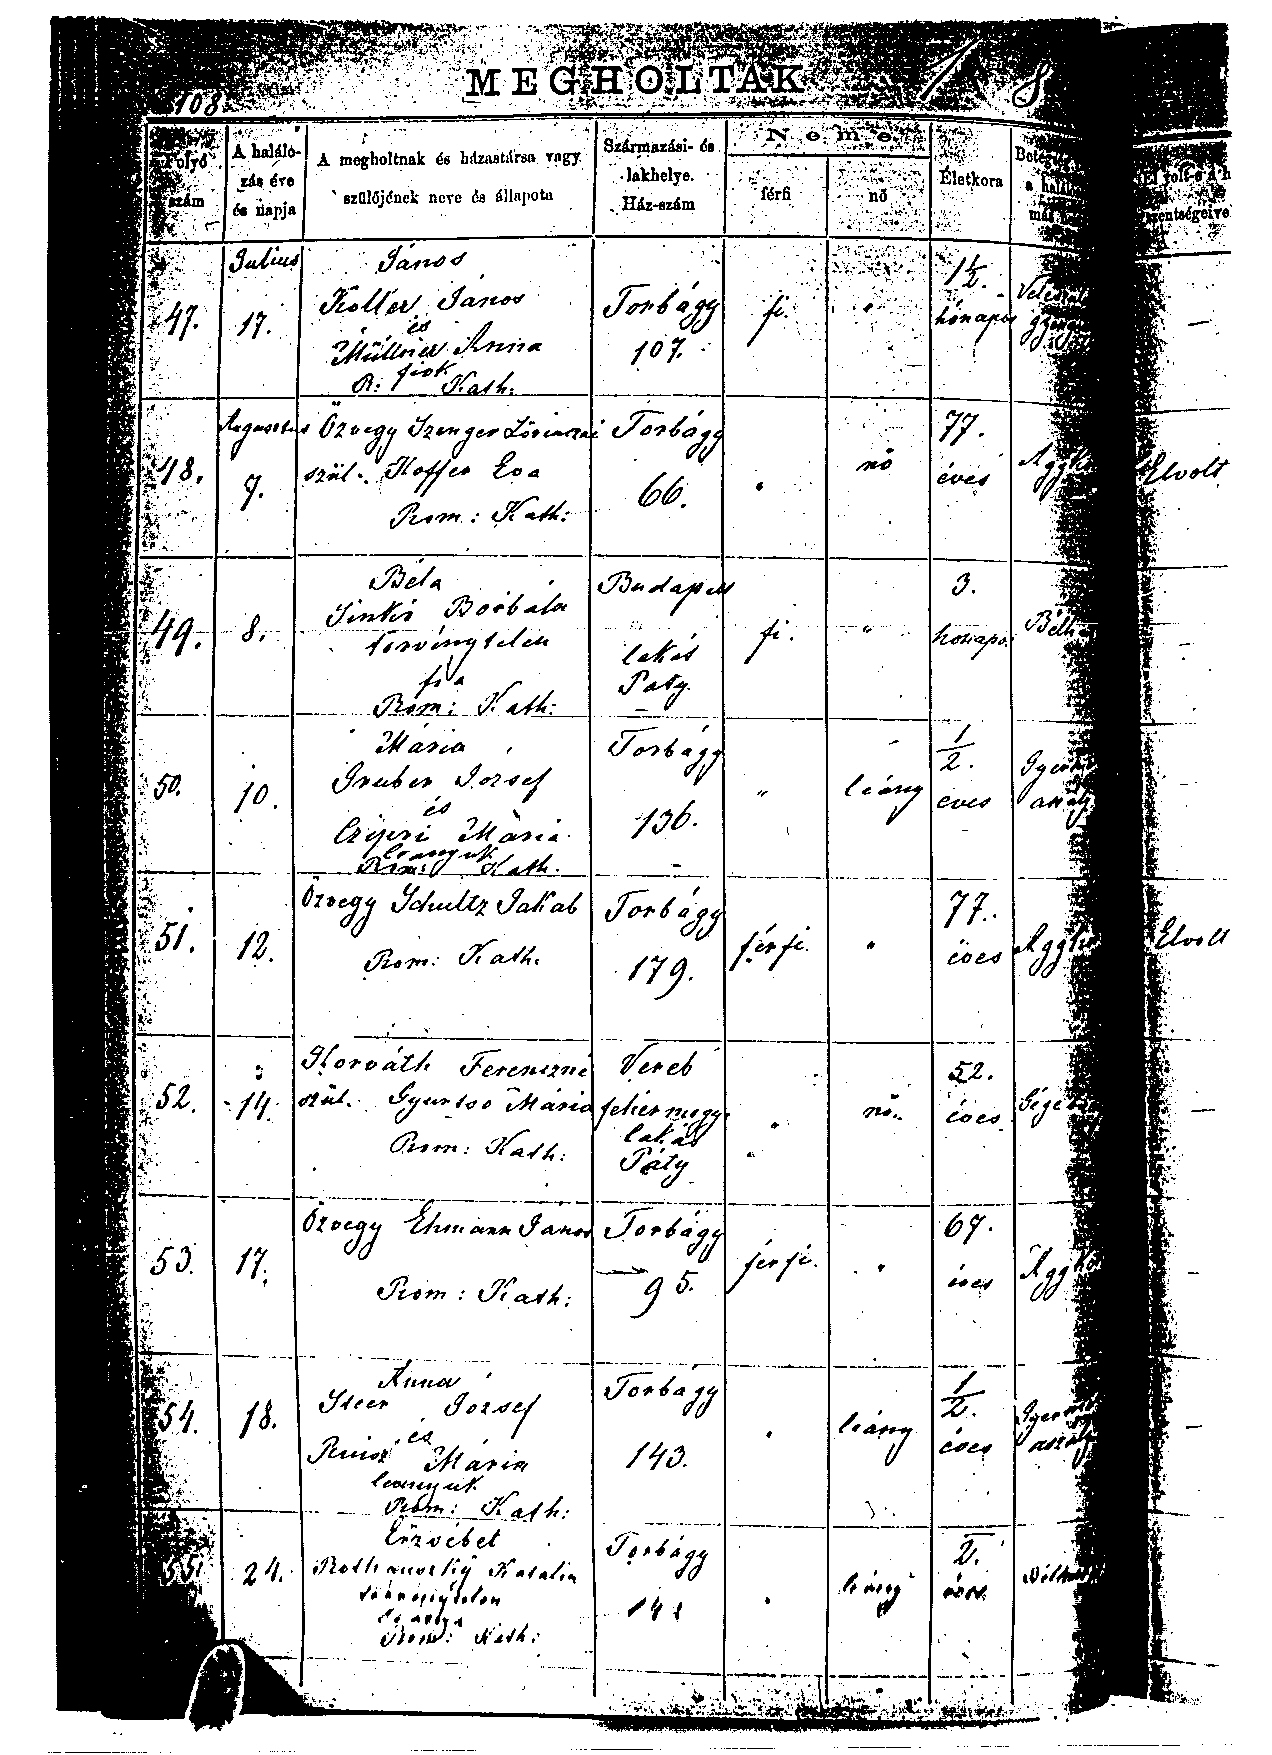 MEGHOLTAK 1 8
108.
Folyó szám
A halálozás éve és napja
A megholtnak és házastársa vagy szülőjének neve és állapota
Származási- és lakhelye. Ház-szám
Neme
férfi
nő
Életkora
47.
Julius
17.
János
Koller János
és
Müllner Anna
fiok
R: Kath:
Torbágy
107.
fi.
"
1½.
hónapos
48.
Augusztus
7.
Özvegy Szenger Lörinczné
szül. Hoffer Éva
Rom: Kath:
Torbágy
66.
nő
77.
éves
Elvolt
49.
8.
Béla
Sinkó Borbála
törvénytelen
fia
Rom: Kath:
Budapest
lakás
Páty.
fi.
"
3.
honapo.
50.
10.
Mária
Gruber József
és
Mária
leanyuk
Rom: Kath.
Torbágy
136.
"
leány
1/2.
éves
51.
12.
Özvegy Schultz Jakab
Rom: Kath.
Torbágy
179.
férfi.
"
77.
éves
Elvolt
52.
14.
Horváth Ferenczné
szül. Mária
Rom: Kath:
Vereb
fehérmegy.
lakás
Páty
nő.
52.
éves
53.
17.
Özvegy Ehmann János
Rom: Kath:
Torbágy
95.
férfi.
"
67.
éves
54.
18.
Anna
József
és
Mária
leanyuk
Rom: Kath:
Torbágy
143.
leány
1/2.
éves
55.
24.
Erzsébet
Katalin
törvénytelen
leánya
Rom: Kath:
Torbágy
141
leány
2.
éves